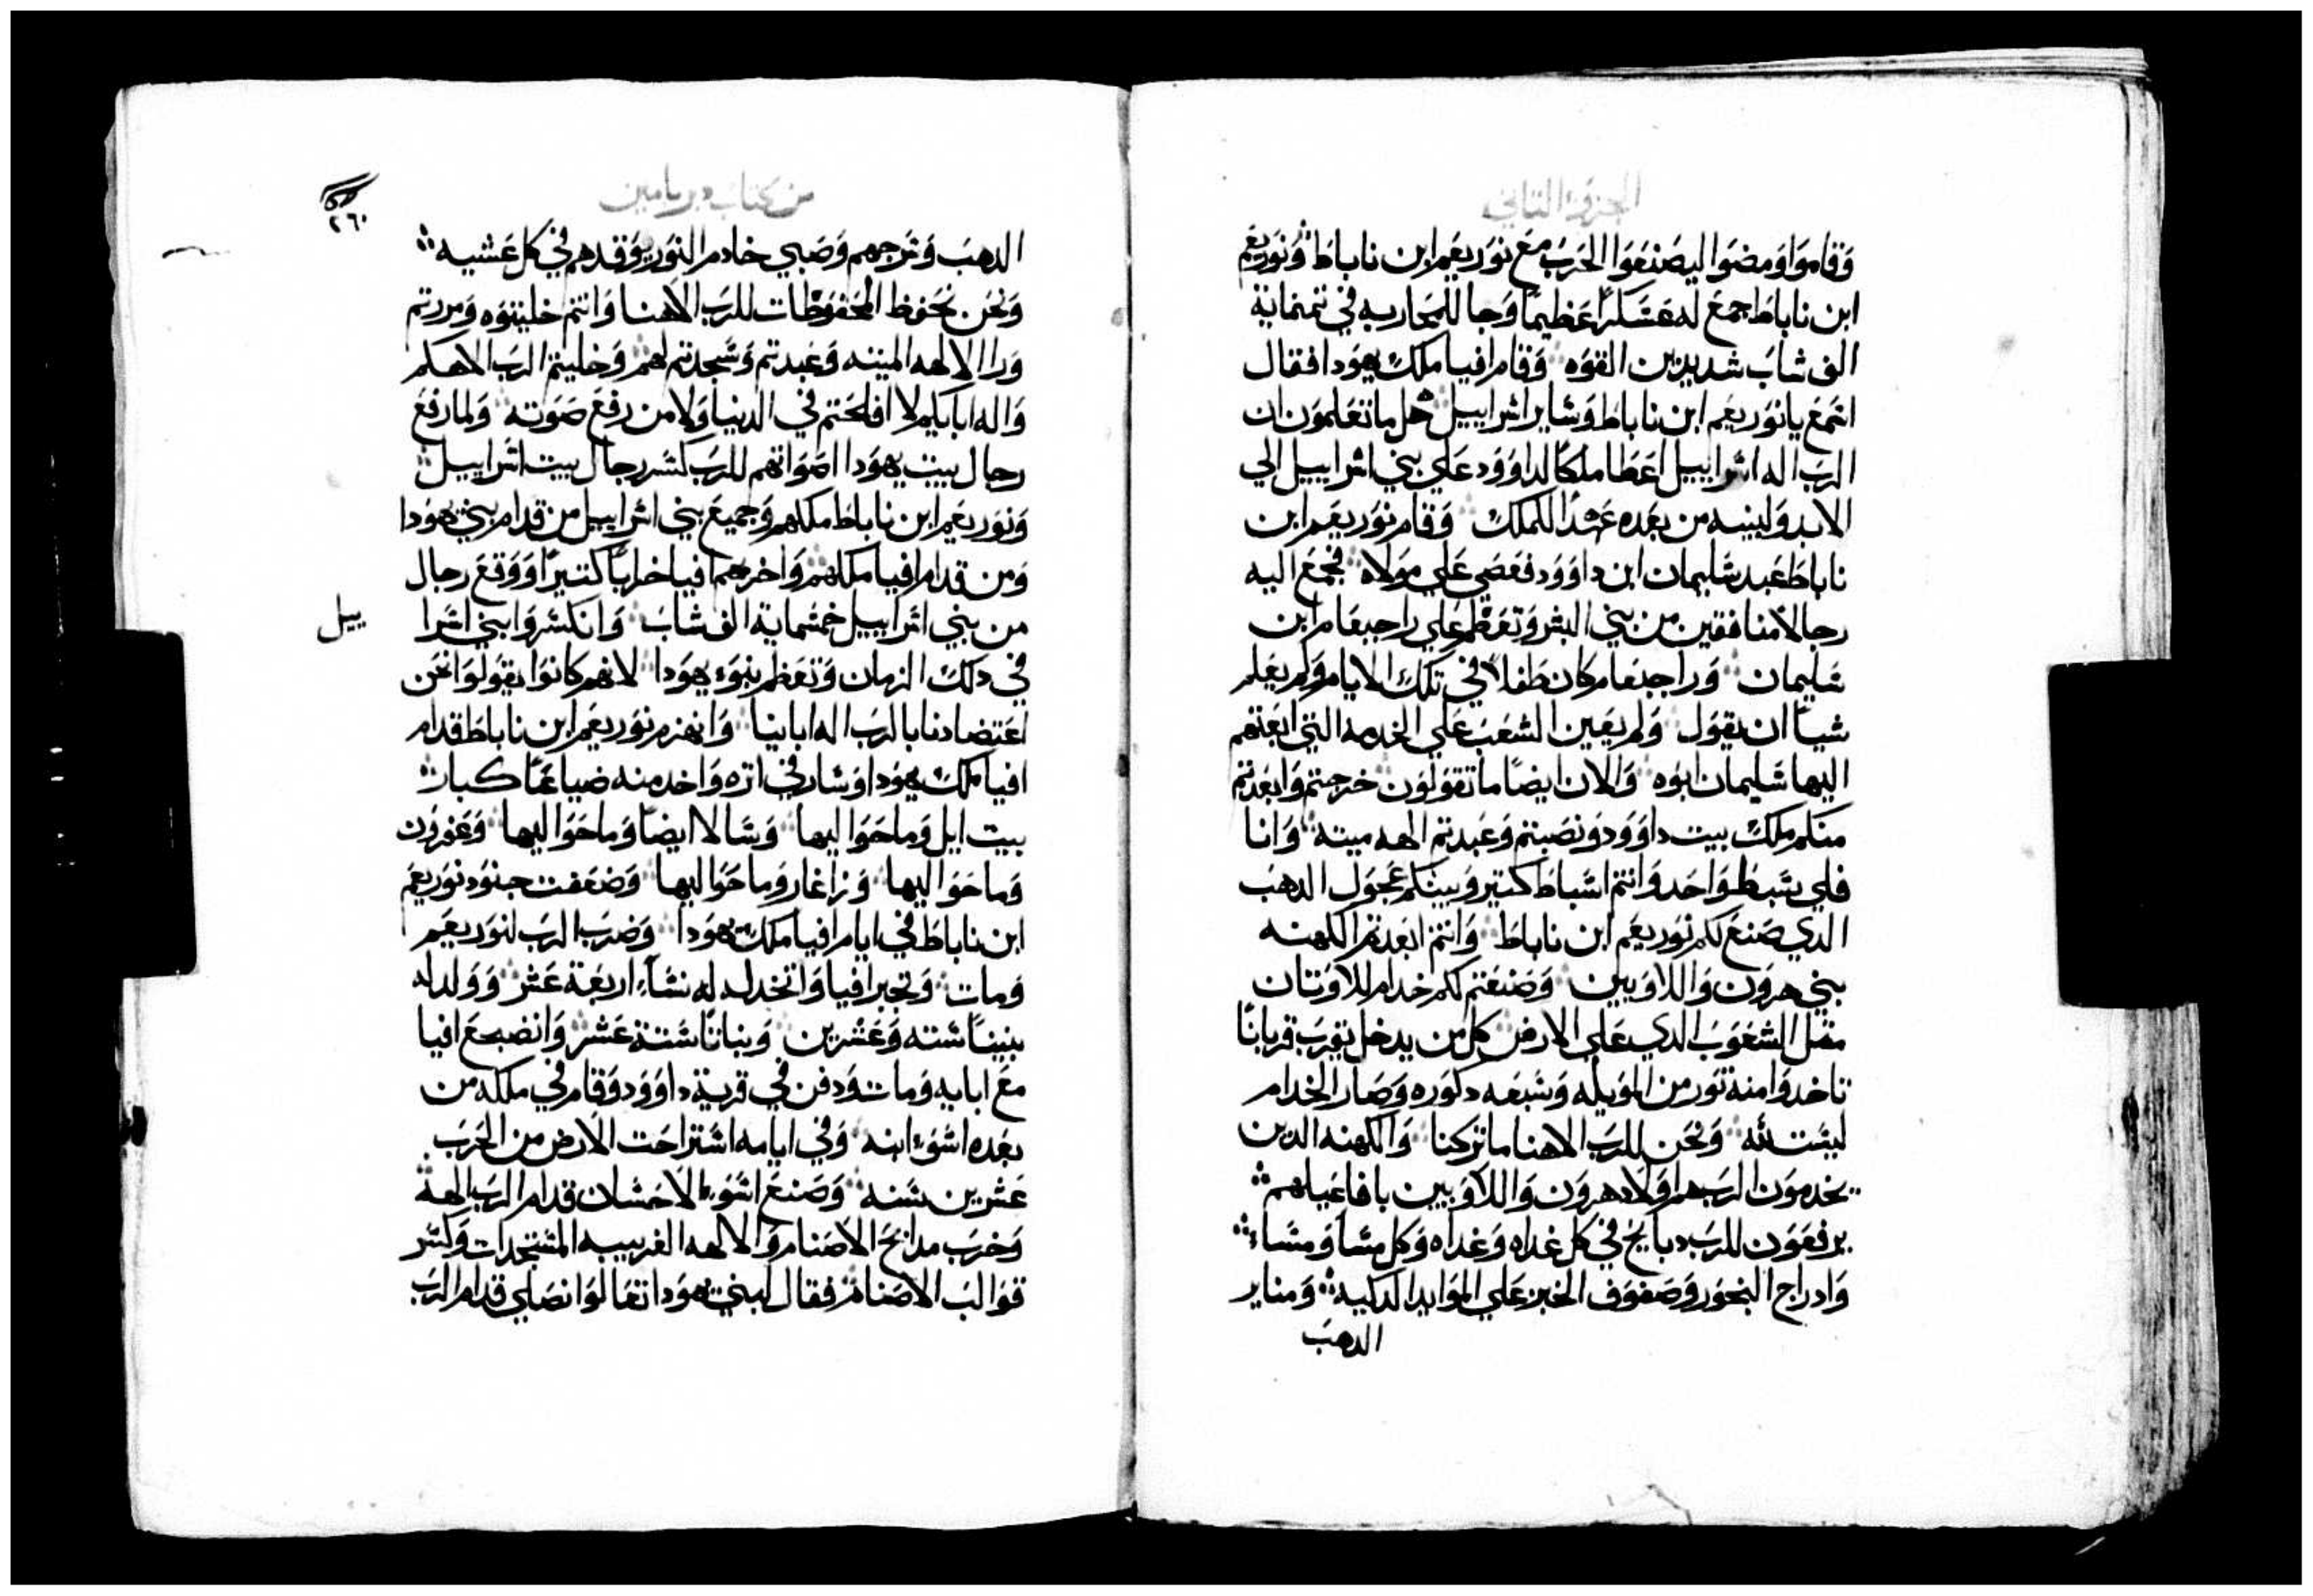 الجزو التاني
وقاموا ومضوا ليصنعوا الحرب مع نوربعم ابن ناباط ونوربعم
ابن ناباط جمع له عسكراً عظيماً وجا للمحاربه في تمنماية
الف شاب شديدين القوه وقام افيا ملك يهودا فقال
اسمع يا نوربعم ابن ناباط وساير اسراييل هل ما تعلمون ان
الرب اله اسراييل اعطا ملكاً لداوود علي بني اسراييل الي
الابد ولبنيه من بعده عهد الملك وقام نوربعم ابن
ناباط عبد سليمان ابن داوود فعصي علي مولاه فجمع اليه
رجالاً منافقين من بني البشر وتعظم علي راحبعام ابن
سليمان وراحبعام كان طفلاً في تلك الايام ولم يعلم
شياً ان يقول ولم يعين الشعب علي الخدمه التي ابعتهم
اليها سليمان ابوه والان ايضاً ما تقولون خرجتم وابعدتم
منكم ملك بيت داوود ونصبتم وعبدتم الهه ميته وانا
فلي سبط واحد وانتم اسباط كتير وبينكم عجول الدهب
الدي صنع لكم نوربعم ابن ناباط وانتم ابعدتم الكهنه
بني هرون واللاويين وصنعتم لكم خدام للاوتان
متل الشعوب الدي علي الارض كل من يدخل يقرب قرباناً
تاخدوا منه تور من المويله وسبعه دكوره وصار الخدام
ليست لله ونحن للرب الاهنا ما تركنا والكهنه الدين
يخدمون الرب هم اولاد هرون واللاويين بافاعيلهم
يرفعون للرب دبايح في كل غداه وغداه وكل مسا ومساء
وادراج البخور وصفوف الخبز علي الموايد الدكيه ومناير
الدهب
من كتاب دبريامين
٢٦٠
الدهب وسرجهم وصبي خادم النور يوقدهم في كل عشيه
ونحن نحفظ المحفوظات للرب الاهنا وانتم خليتوه ومررتم
ورا الالهه الميته وعبدتم وسجدتم لهم وخليتم الرب الاهكم
واله ابايكم لا افلحتم في الدنيا ولا من رفع صوته ولما رفع
رجال بيت يهودا اصواتهم للرب كسر رجال بيت اسراييل
ونوربعم ابن ناباط ملكهم وجميع بني اسراييل من قدام بني يهودا
ومن قدام افيا ملكهم واخربهم افيا خراباً كتيراً ووقع رجال
من بني اسراييل خمسماية الف شاب وانكسروا بني اسرا
ييل
في دلك الزمان وتعظم بنوء يهودا لانهم كانوا يقولوا نحن
اعتضادنا بالرب اله اباينا وانهزم نوربعم ابن ناباط قدام
افيا ملك يهودا وسار في اتره واخد منه ضياعاً كبار
بيت ايل وما حوا اليها وسالا ايضاً وما حوا اليها وعفرون
وما حوا اليها وزاغار وما حوا اليها وضعفت جنود نوربعم
ابن ناباط في ايام افيا ملك يهودا وضرب الرب لنوربعم
ومات وتجبر افيا واتخد له نساء اربعة عشر وولد له
بنيناً سته وعشرين وبناتاً ستة عشر وانضجع افيا
مع ابايه ومات ودفن في قرية داوود وقام في ملكه من
بعده اسوء ابنه وفي ايامه استراحت الارض من الحرب
عشرين سنه وصنع اسوء الاحسان قدام الرب الهه
وخرب مدابح الاصنام والالهه الغريبه المستجدات وكسر
قوالب الاصنام فقال لبني يهودا تعالوا نصلي قدام الرب